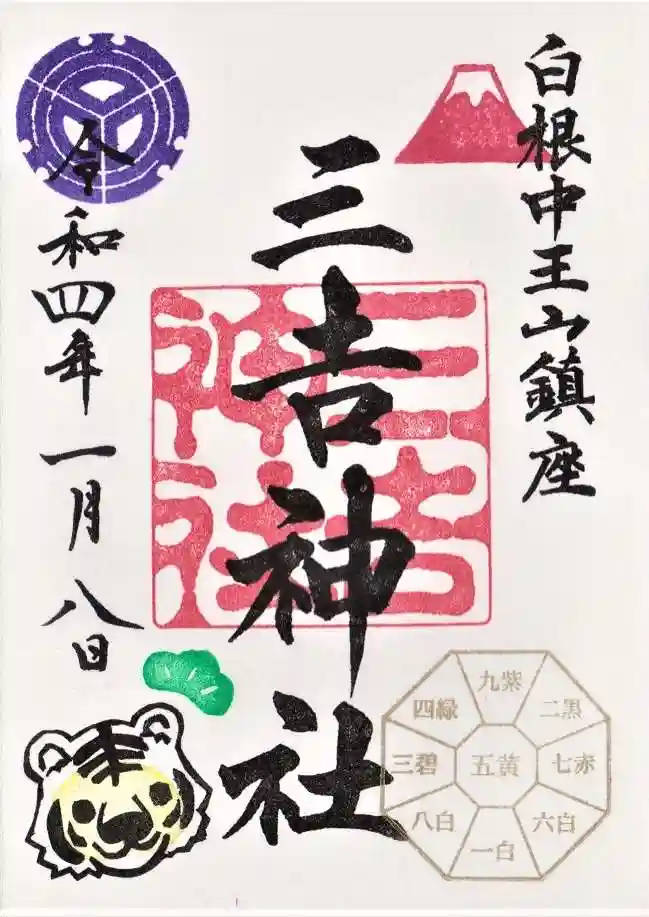 白根中王山鎮座
三吉神社
三吉神社
令和四年一月八日
四緑 九紫 二黒
三碧 五黄 七赤
八白 一白 六白